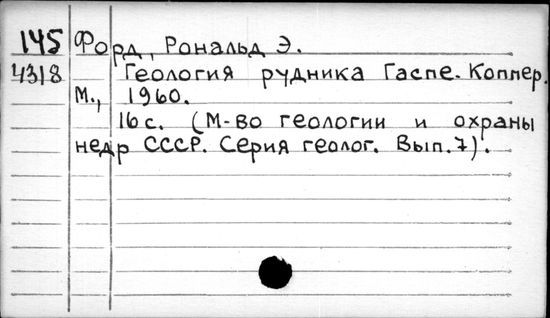 145 Форд, Рональд Э.
4318 Геология рудника Гаспе-Коппер.
М., 1960.
16 с. (М-во геологии и охраны
недр СССР. Серия геолог. Вып. 7).